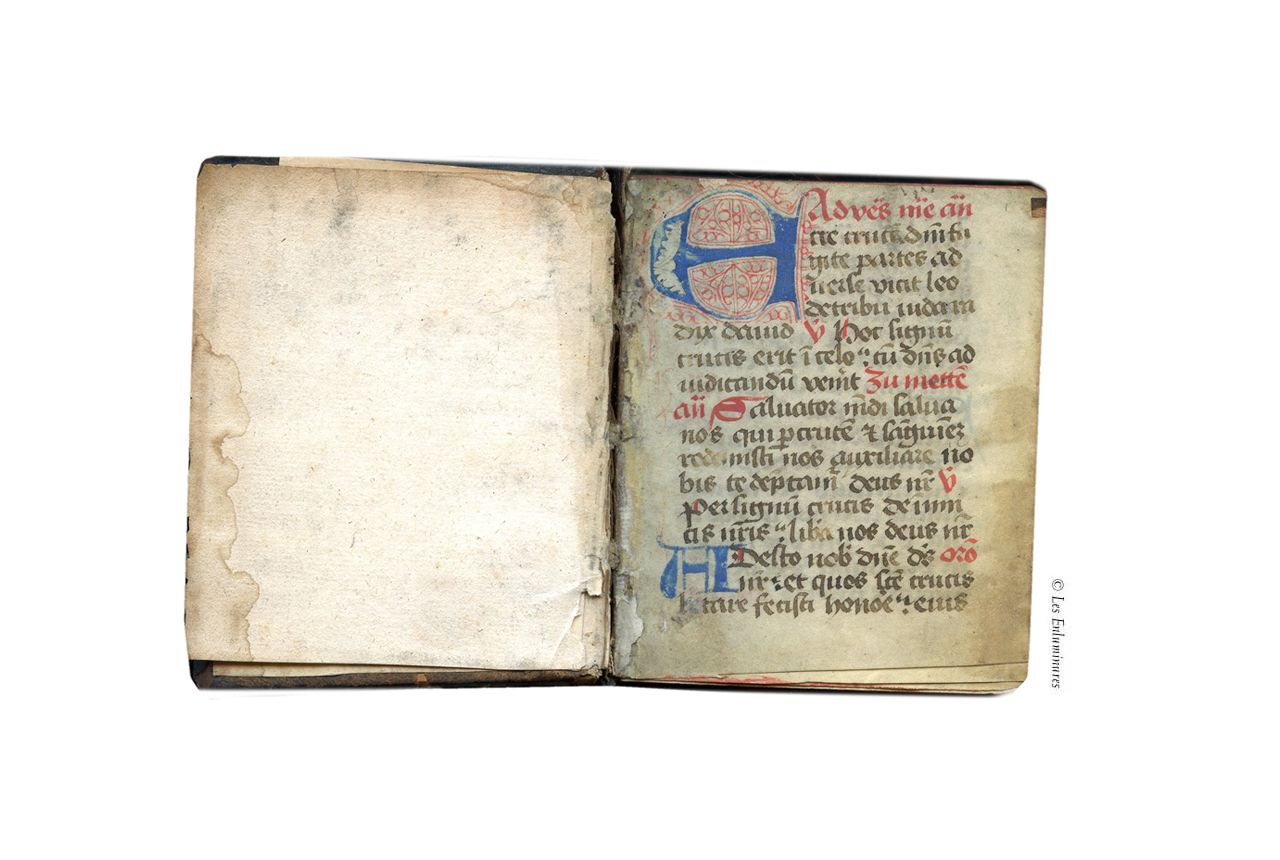 Ad vēs nr̄e an̄
E cce crucē dnī fu
gite partes ad
uerse vicit leo
de tribu iuda ra
dix dauid v̄ Hoc signū
crucis erit ī celo : cū dn̄s ad
iudicandū venīt Zu mettē
an̄ Saluator mn̄di salua
nos qui p crucē & sāguīez
redemisti nos auxiliare no
bis te dep̄camr̄ deus nr̄ v̄
Per signū crucis de inimi
cis nr̄is : lib̄a nos deus nr̄
ADesto nob̄ dn̄e ds̄ orō
nr̄ : et quos scē crucis
letare fecisti honoē : eius
© Les Enluminures